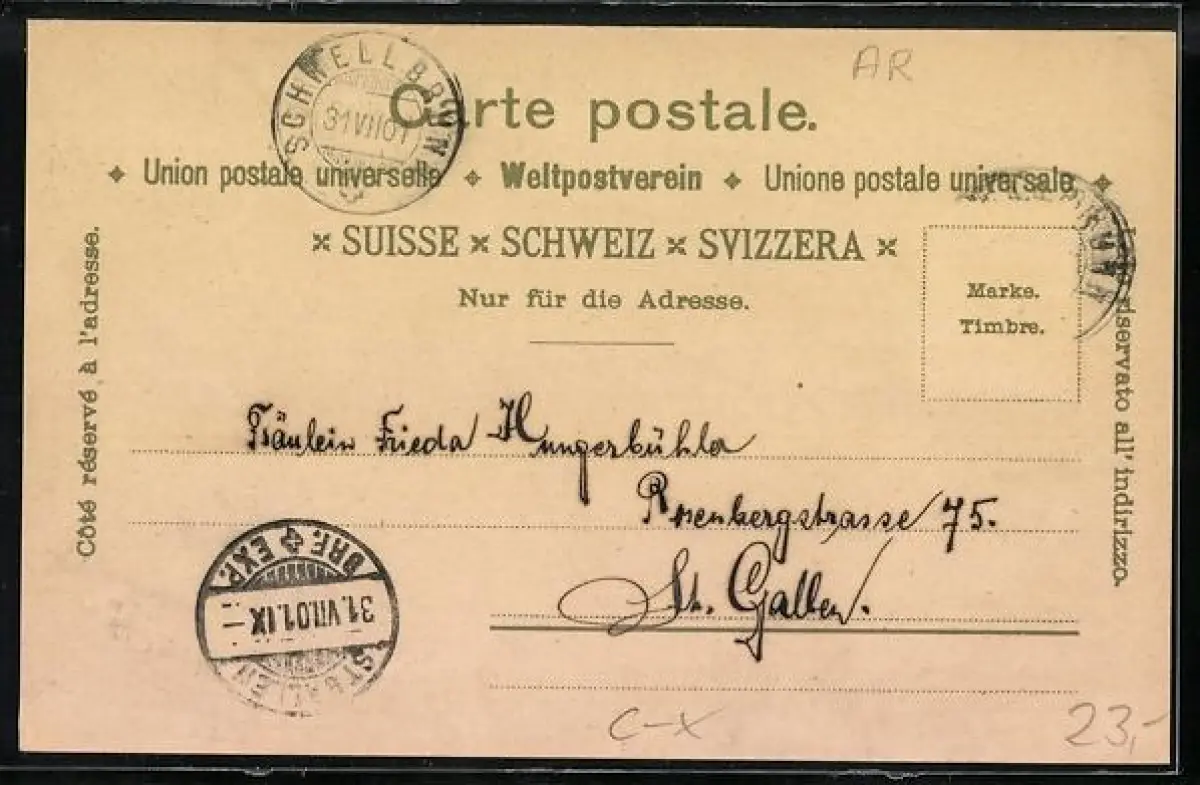 AR
SCHWELLBRUNN
31 VII 01
Carte postale.
Union postale universelle Weltpostverein Unione postale universale
SUISSE SCHWEIZ SVIZZERA
Nur für die Adresse.
Marke.
Timbre.
Côté réservé à l'adresse.
riservato all' indirizzo.
Fräulein Frieda Hungerbühler
Rosenbergstrasse 75.
St. Gallen.
BRF. EXP.
31. VII. 01. IX
ST. GALLEN
C-X
23,-